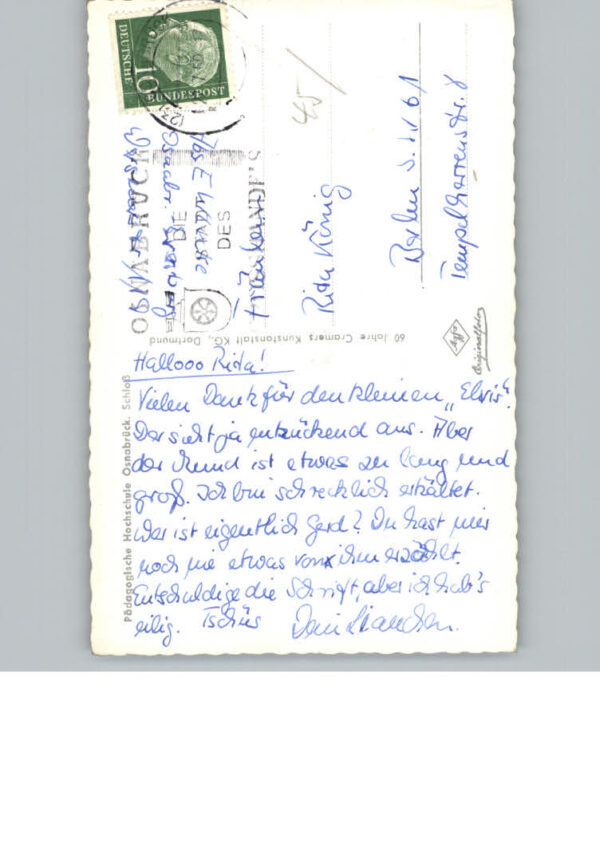 Hallooo Rita!
Vielen Dank für den kleinen „Elvis".
Der sieht ja entzückend aus. Aber
der Mund ist etwas zu lang und
groß. Ich bin schrecklich erkältet.
Wer ist eigentlich Gerd? Du hast mir
noch nie etwas von ihm erzählt.
Entschuldige die Schrift, aber ich hab's
eilig. Tschüs Dein
Pädagogische Hochschule Osnabrück. Schloß
60 Jahre Cramers Kunstanstalt KG., Dortmund
Agfa
Originalfoto
DEUTSCHE
BUNDESPOST
10
OSNABRÜCK
DIE
DES
Abs. E.
45/
Fräulein
Rita König
Berlin S.W. 61
Tempelherrenstr. 8